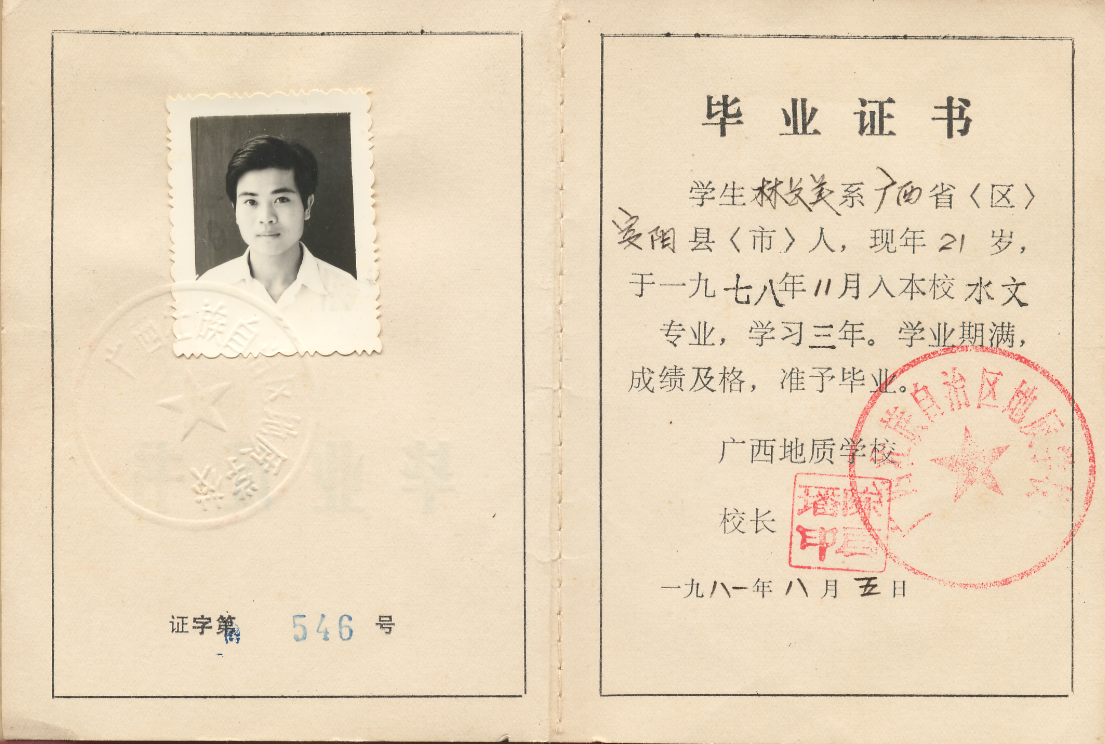 广西壮族自治区地质学校
证字第 546 号
毕业证书
学生林文美系广西省〈区〉
宾阳县〈市〉人，现年21岁，
于一九七八年11月入本校水文
专业，学习三年。学业期满，
成绩及格，准予毕业。
广西地质学校
广西壮族自治区地质学校
校长
一九八一年八月五日